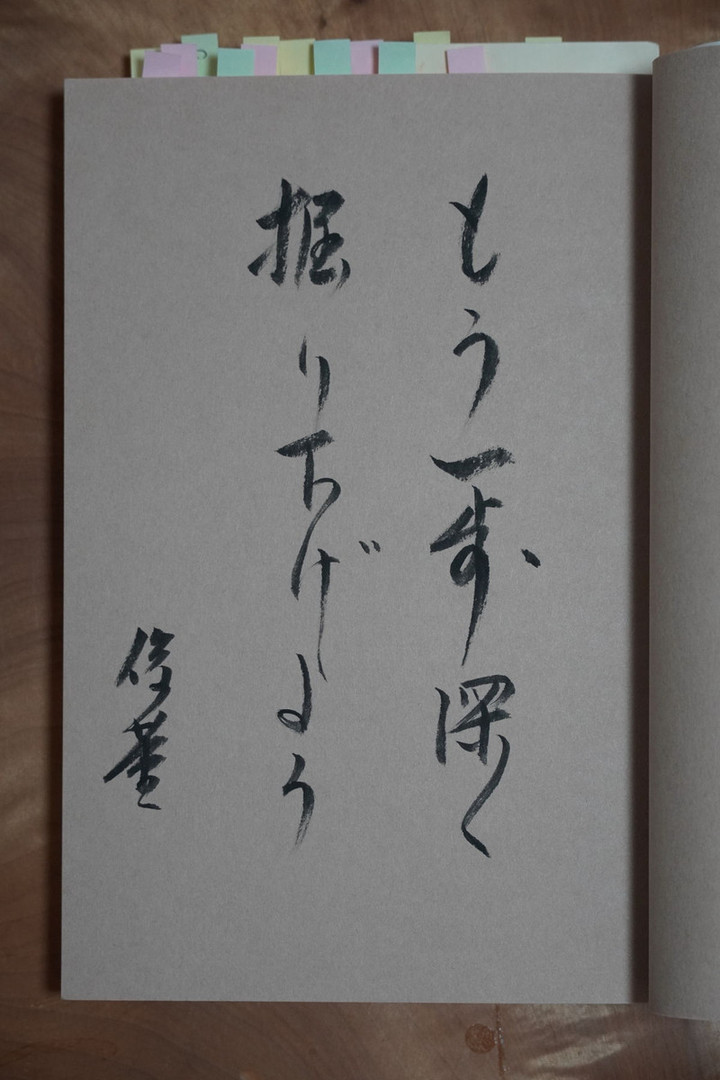 もう一歩深く
掘り下げよう
俊董